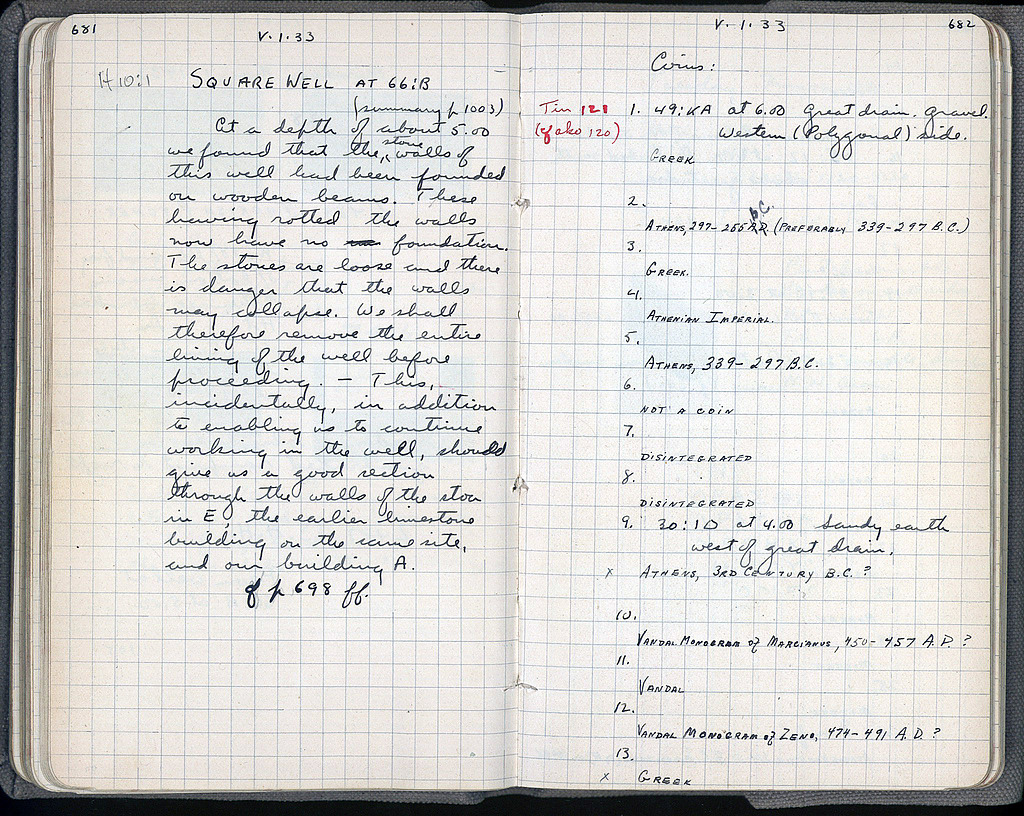 681
V.1.33
H 10:1 SQUARE WELL AT 66:B
(summary p 1003)
At a depth of about 5.00
we found that the stone walls of
this well had been founded
on wooden beams. These
having rotted the walls
now have no foundation.
The stones are loose and there
is danger that the walls
may collapse. We shall
therefore remove the entire
lining of the well before
proceeding. – This,
incidentally, in addition
to enabling us to continue
working in the well, should
give us a good section
through the walls of the stoa
in E, the earlier limestone
building on the same site,
and our building A.
cf p 698 ff.
V.1.33
682
Coins:
Tin 121
(cf also 120)
1. 49:KA at 6.00 Great drain. gravel.
Western (Polygonal) side.
GREEK
2.
ATHENS, 297-255 A.D. B.C. (PREFERABLY 339-297 B.C.)
3.
GREEK.
4.
ATHENIAN IMPERIAL.
5.
ATHENS, 339-297 B.C.
6.
NOT A COIN
7.
DISINTEGRATED
8.
DISINTEGRATED
9. 30:ΙΔ at 4.00 Sandy earth
west of great drain.
x ATHENS, 3RD CENTURY B.C. ?
10.
VANDAL MONOGRAM of MARCIANUS, 450-457 A.D. ?
11.
VANDAL
12.
VANDAL MONOGRAM of ZENO, 474-491 A.D. ?
13.
x GREEK